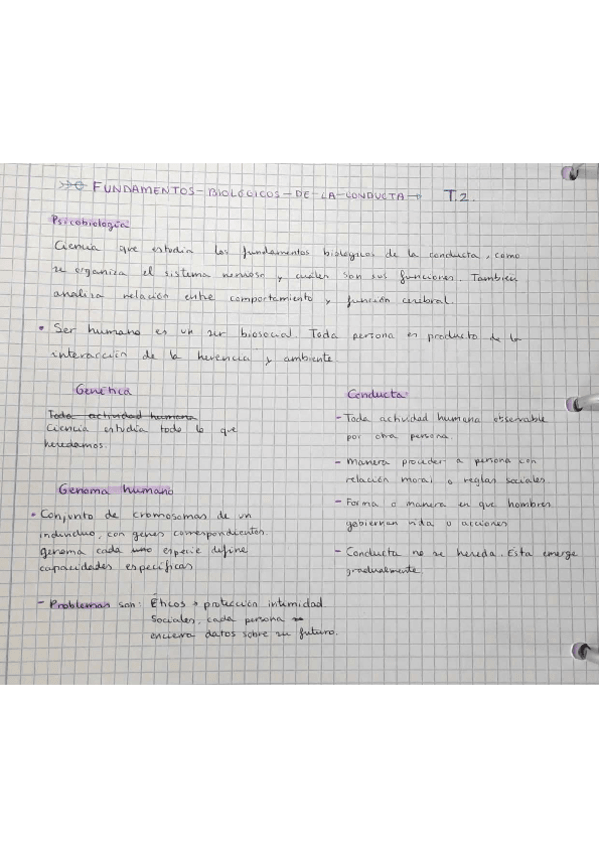 FUNDAMENTOS-BIOLÓGICOS-DE-LA-CONDUCTA→ T.2.
Psicobiología
Ciencia que estudia los fundamentos biológicos de la conducta, como
se organiza el sistema nervioso y cuáles son sus funciones. También
analiza relación entre comportamiento y función cerebral.
• Ser humano es un ser biosocial. Toda persona es producto de la
interacción de la herencia y ambiente.
Genética
Toda actividad humana
Ciencia estudia todo lo que
heredamos.
Genoma humano
• Conjunto de cromosomas de un
individuo, con genes correspondientes.
genoma cada uno especie define
capacidades específicas
- Problemas son: Éticos → protección intimidad
Sociales, cada persona
encierra datos sobre su futuro.
Conducta:
- Toda actividad humana observable
por otra persona.
- Manera proceder a persona con
relación moral o reglas sociales.
- Forma o manera en que hombres
gobiernan vida o acciones
- Conducta no se hereda. Esta emerge
gradualmente.